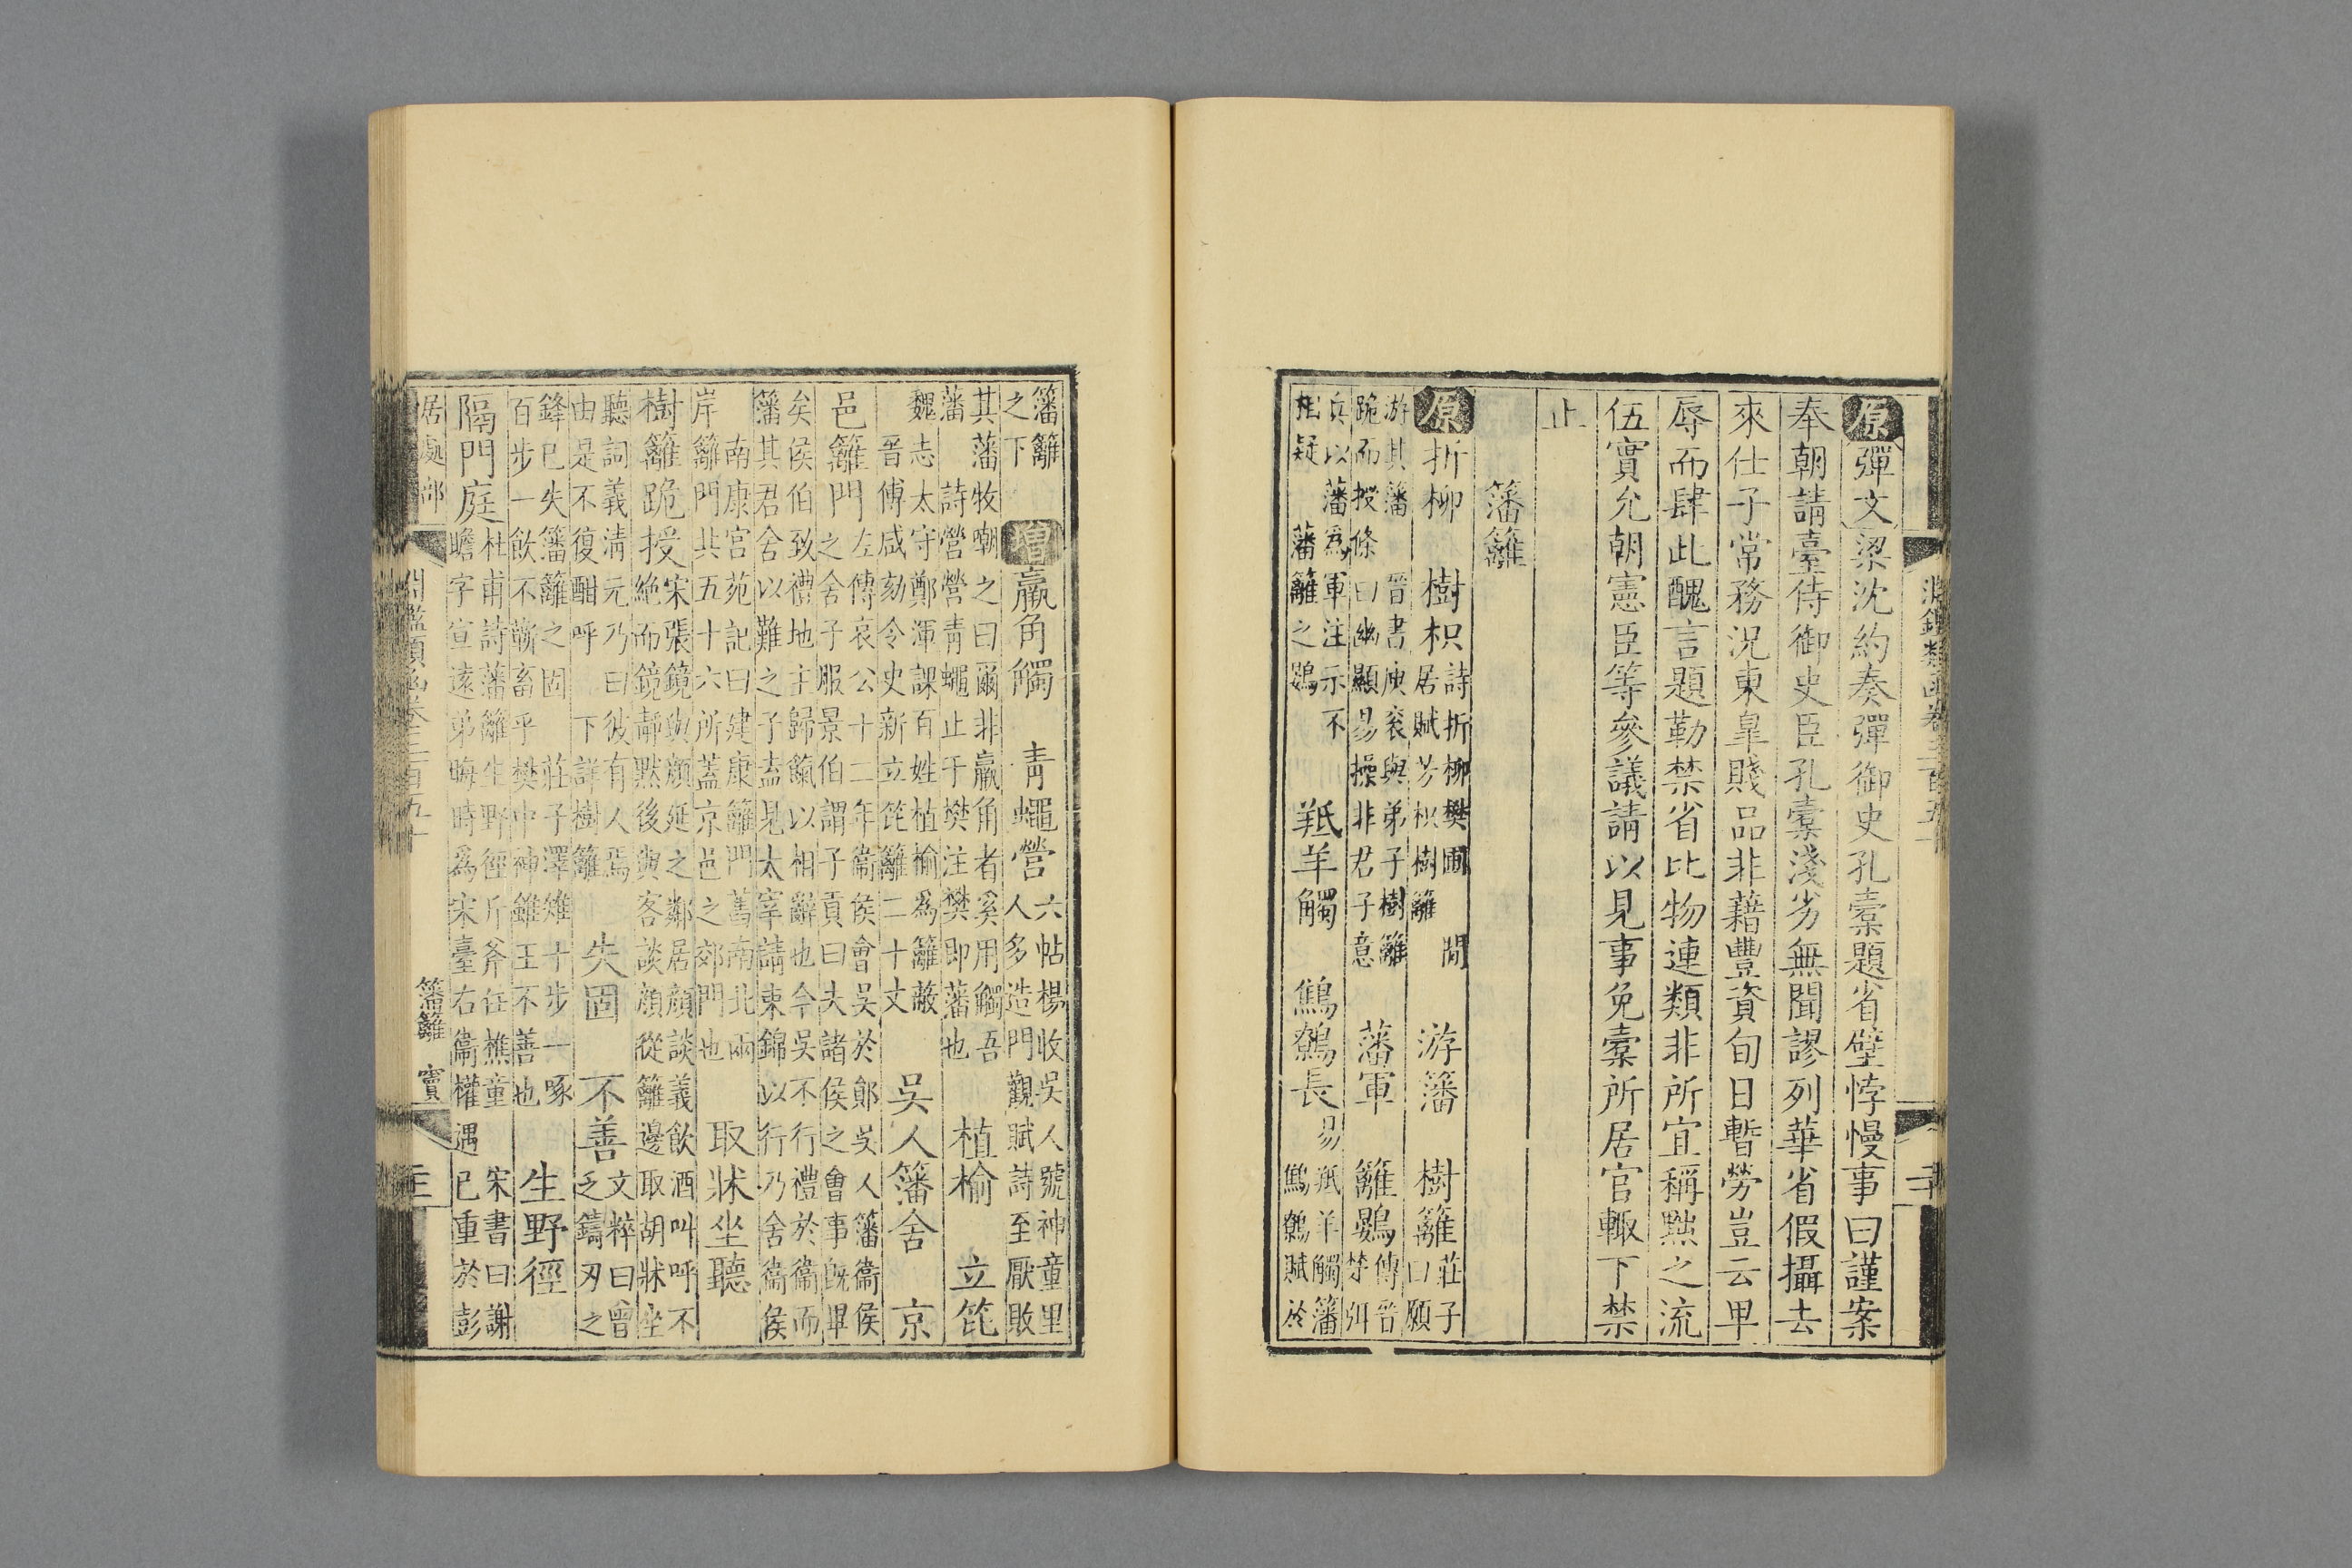 淵鑑類函卷三百五十
原彈文梁沈約奏彈御史孔橐題省壁悖慢事曰謹案
奉朝請臺待御史臣孔橐淺劣無聞謬列華省假攝去
來仕子常務況東皐賤品非藉豐資旬日暫勞豈云卑
辱而肆此醜言題勒禁省比物連類非所宜稱黙之流
伍實允朝憲臣等參議請以見事免橐所居官輙下禁
止
藩籬
原折柳 樹枳詩折柳樊圃 閒居賦芳枳樹籬 游籓 樹籬莊子曰願
游其藩 晉書庾衮與弟子樹籬跪而授條曰幽顯易操非君子意 藩軍 籬鷃傳晉楚弭
兵以藩爲軍注示不相疑 藩籬之鷃 羝羊觸 鷦鷯長易羝羊觸藩 鷦鷯賦於
籓籬之下 增羸角觸 青蠅營六帖楊收吳人號神童里人多造門觀賦詩至厭敗
其藩牧嘲之曰爾非羸角者奚用觸吾藩 詩營營青蠅止于樊注樊即藩也 植榆 立笓
魏志太守鄭渾課百姓植榆爲籬 晉傅咸劾令史新立笓籬二十丈 吳人籓舍 京
邑籬門左傳哀公十二年衞侯會吳於鄖吳人籓衞侯之舍子服景伯謂子貢曰夫諸侯之會事旣畢
矣侯伯致禮地主歸餼以相辭也今吳不行禮於衞而籓其君舍以難之子盍見太宰請束錦以行乃舍衞侯
南康宮苑記曰建康籬門舊南北兩岸籬門共五十六所蓋京邑之郊門也 取牀坐聽
樹籬跪授宋張鏡與顏延之鄰居顏談義飲酒叫呼不絶而鏡靜黙後與客談顏從籬邊取胡牀坐
聽詞義淸元乃曰彼有人焉由是不復酣呼 下詳樹籬 失固 不善文粹曰曾之鑄刃之
鋒已失籓籬之固 莊子澤雉十步一啄百步一飲不蘄畜乎樊中神雖王不善也 生野徑
隔門庭杜甫詩藩籬生野徑斤斧任樵童 宋書曰謝瞻字宣遠弟晦時爲宋臺右衞權遇已重於彭
居處部 淵鑑類函卷三百五十 籓籬 竇